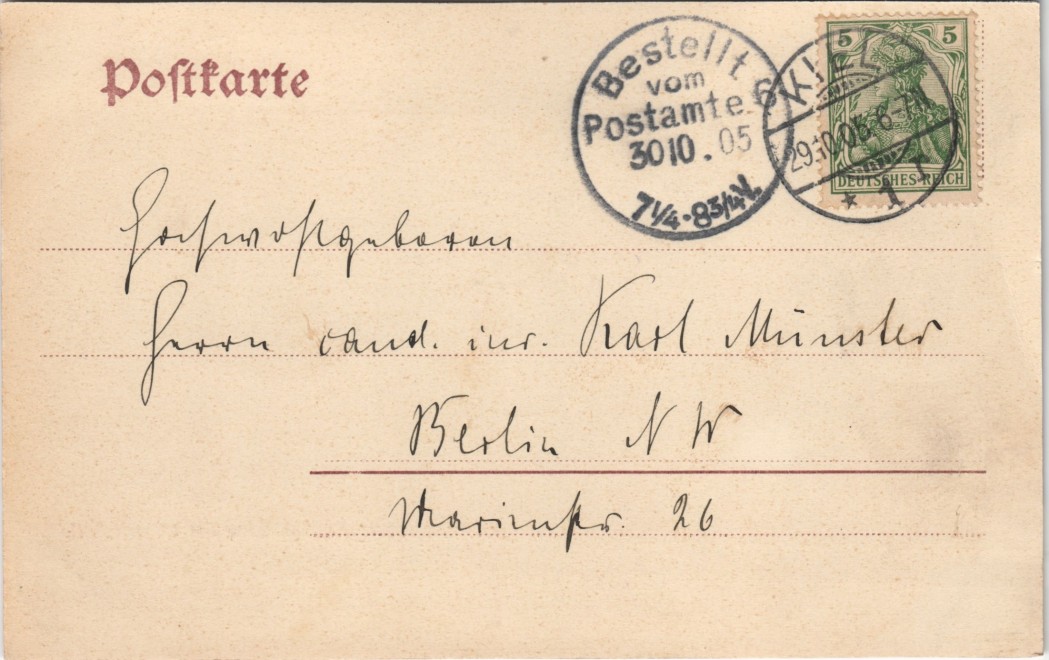 Postkarte
Bestellt
vom
Postamte 6
30 10. 05
7 1/4 - 8 3/4 V.
KIEL
29.10.05. 6-7 N
* 1 r
5 5
DEUTSCHES REICH
Hochwohlgeboren
Herrn cand. iur. Karl Münster
Berlin NW
Marienstr. 26